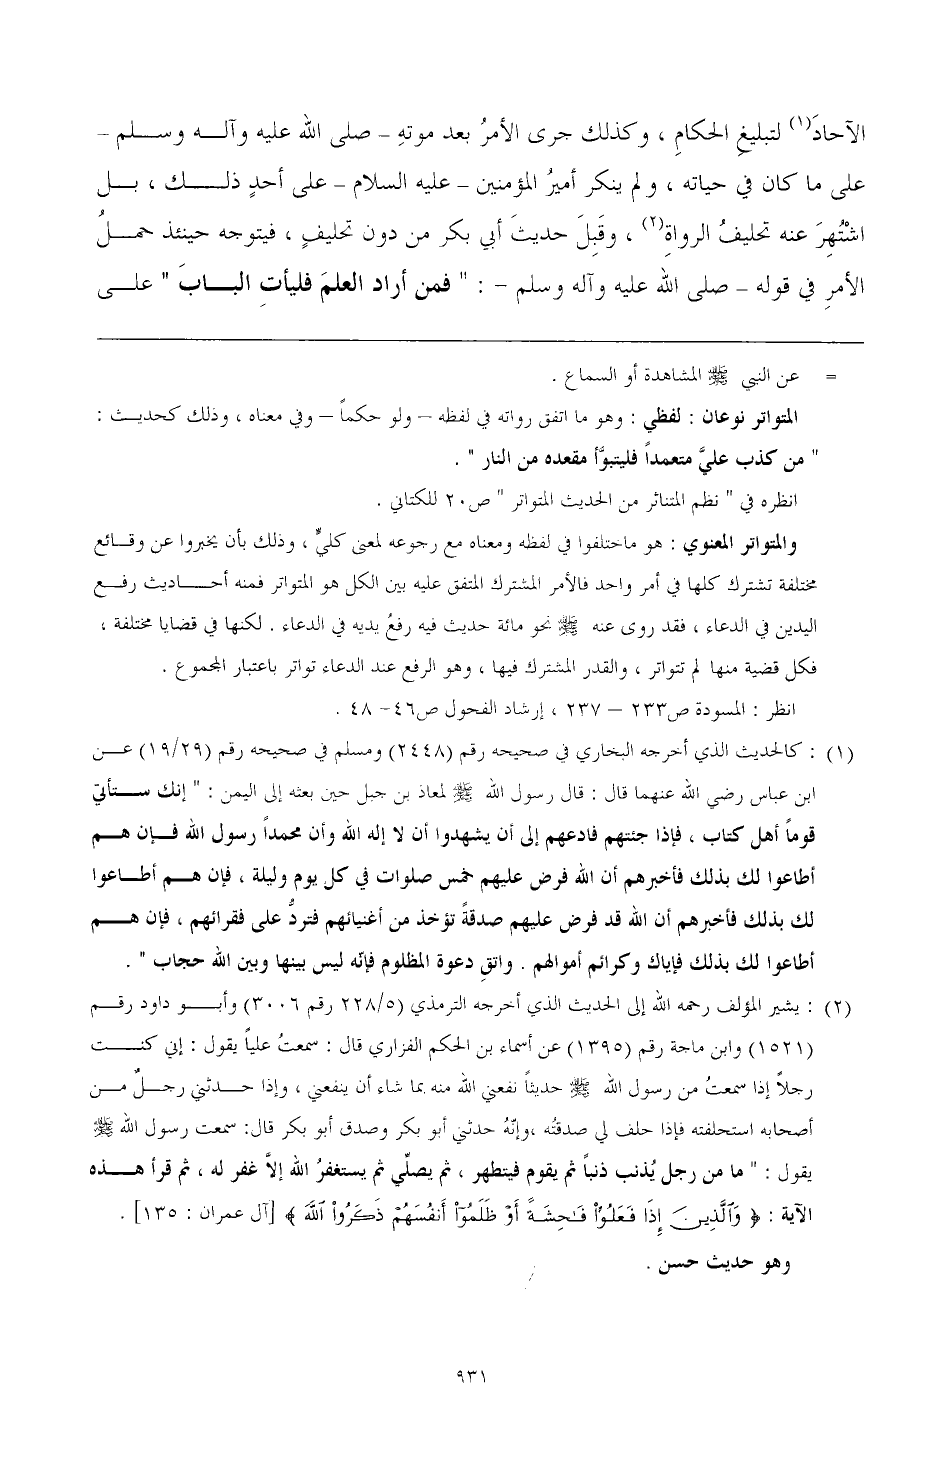 الآحادَ(١) لتبليغِ الحكامِ ، وكذلك جرى الأمرُ بعد موتهِ – صلى الله عليه وآله وسلم –
على ما كان في حياته ، ولم ينكر أميرُ المؤمنين – عليه السلام – على أحدٍ ذلك ، بل
اشْتُهِرَ عنه تحليفُ الرواةِ(٢) ، وقَبِلَ حديثَ أبي بكر من دون تحليفٍ ، فيتوجه حينئذ حملُ
الأمرِ في قوله – صلى الله عليه وآله وسلم – : " فمن أراد العلمَ فليأتِ البابَ " على
= عن النبي ﷺ المشاهدة أو السماع .
المتواتر نوعان : لفظي : وهو ما اتفق رواته في لفظه – ولو حكماً – وفي معناه ، وذلك كحديث :
" من كذب عليَّ متعمداً فليتبوَّأ مقعده من النار " .
انظره في " نظم المتناثر من الحديث المتواتر " ص٢٠ للكتاني .
والمتواتر المعنوي : هو ماختلفوا في لفظه ومعناه مع رجوعه لمعنى كليٍّ ، وذلك بأن يخبروا عن وقائع
مختلفة تشترك كلها في أمر واحد فالأمر المشترك المتفق عليه بين الكل هو المتواتر فمنه أحاديث رفع
اليدين في الدعاء ، فقد روى عنه ﷺ نحو مائة حديث فيه رفعُ يديه في الدعاء . لكنها في قضايا مختلفة ،
فكل قضية منها لم تتواتر ، والقدر المشترك فيها ، وهو الرفع عند الدعاء تواتر باعتبار المجموع .
انظر : المسودة ص٢٣٣ – ٢٣٧ ، إرشاد الفحول ص٤٦– ٤٨ .
(١) : كالحديث الذي أخرجه البخاري في صحيحه رقم (٢٤٤٨) ومسلم في صحيحه رقم (١٩/٢٩) عن
ابن عباس رضي الله عنهما قال : قال رسول الله ﷺ لمعاذ بن جبل حين بعثه إلى اليمن : " إنك ستأتي
قوماً أهل كتاب ، فإذا جئتهم فادعهم إلى أن يشهدوا أن لا إله الله وأن محمداً رسول الله فإن هم
أطاعوا لك بذلك فأخبرهم أن الله فرض عليهم خمس صلوات في كل يوم وليلة ، فإن هم أطاعوا
لك بذلك فأخبرهم أن الله قد فرض عليهم صدقةً تؤخذ من أغنيائهم فتردُّ على فقرائهم ، فإن هم
أطاعوا لك بذلك فإياك وكرائم أموالهم . واتقِ دعوة المظلوم فإنَّه ليس بينها وبين الله حجاب " .
(٢) : يشير المؤلف رحمه الله إلى الحديث الذي أخرجه الترمذي (٢٢٨/٥ رقم ٣٠٠٦) وأبو داود رقم
(١٥٢١) وابن ماجة رقم (١٣٩٥) عن أسماء بن الحكم الفزاري قال : سمعتُ علياً يقول : إني كنت
رجلاً إذا سمعتُ من رسول الله ﷺ حديثاً نفعني الله منه بما شاء أن ينفعني ، وإذا حدثني رجلٌ من
أصحابه استحلفته فإذا حلف لي صدقتُه ،وإنَّهُ حدثني أبو بكر وصدق أبو بكر قال: سمعت رسول الله ﷺ
يقول : " ما من رجل يُذنب ذنباً ثم يقوم فيتطهر ، ثم يصلّي ثم يستغفرُ الله إلاَّ غفر له ، ثم قرأ هذه
الآية : ﴿ وَٱلَّذِينَ إِذَا فَعَلُوا۟ فَـٰحِشَةً أَوْ ظَلَمُوٓا۟ أَنفُسَهُمْ ذَكَرُوا۟ ٱللَّهَ ﴾ [آل عمران : ١٣٥] .
وهو حديث حسن .
٩٣١